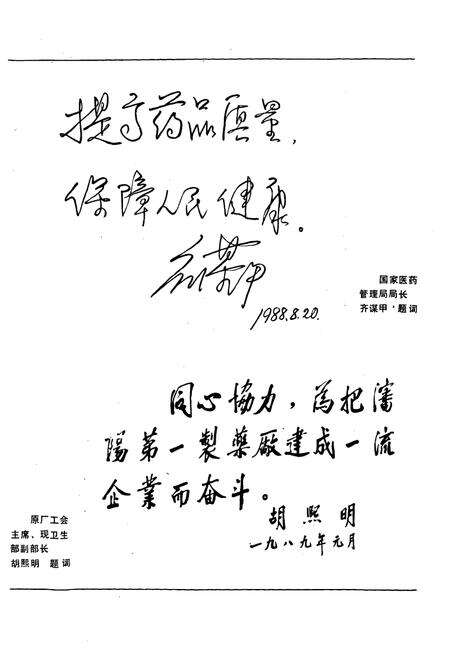 提高药品质量，
保障人民健康。
齐谋甲
1988.8.20.
国家医药
管理局局长
齐谋甲·题词
同心協力，為把瀋
陽第一製藥厰建成一流
企業而奋斗。
胡熙明
一九八九年元月
原厂工会
主席、现卫生
部副部长
胡熙明 题词